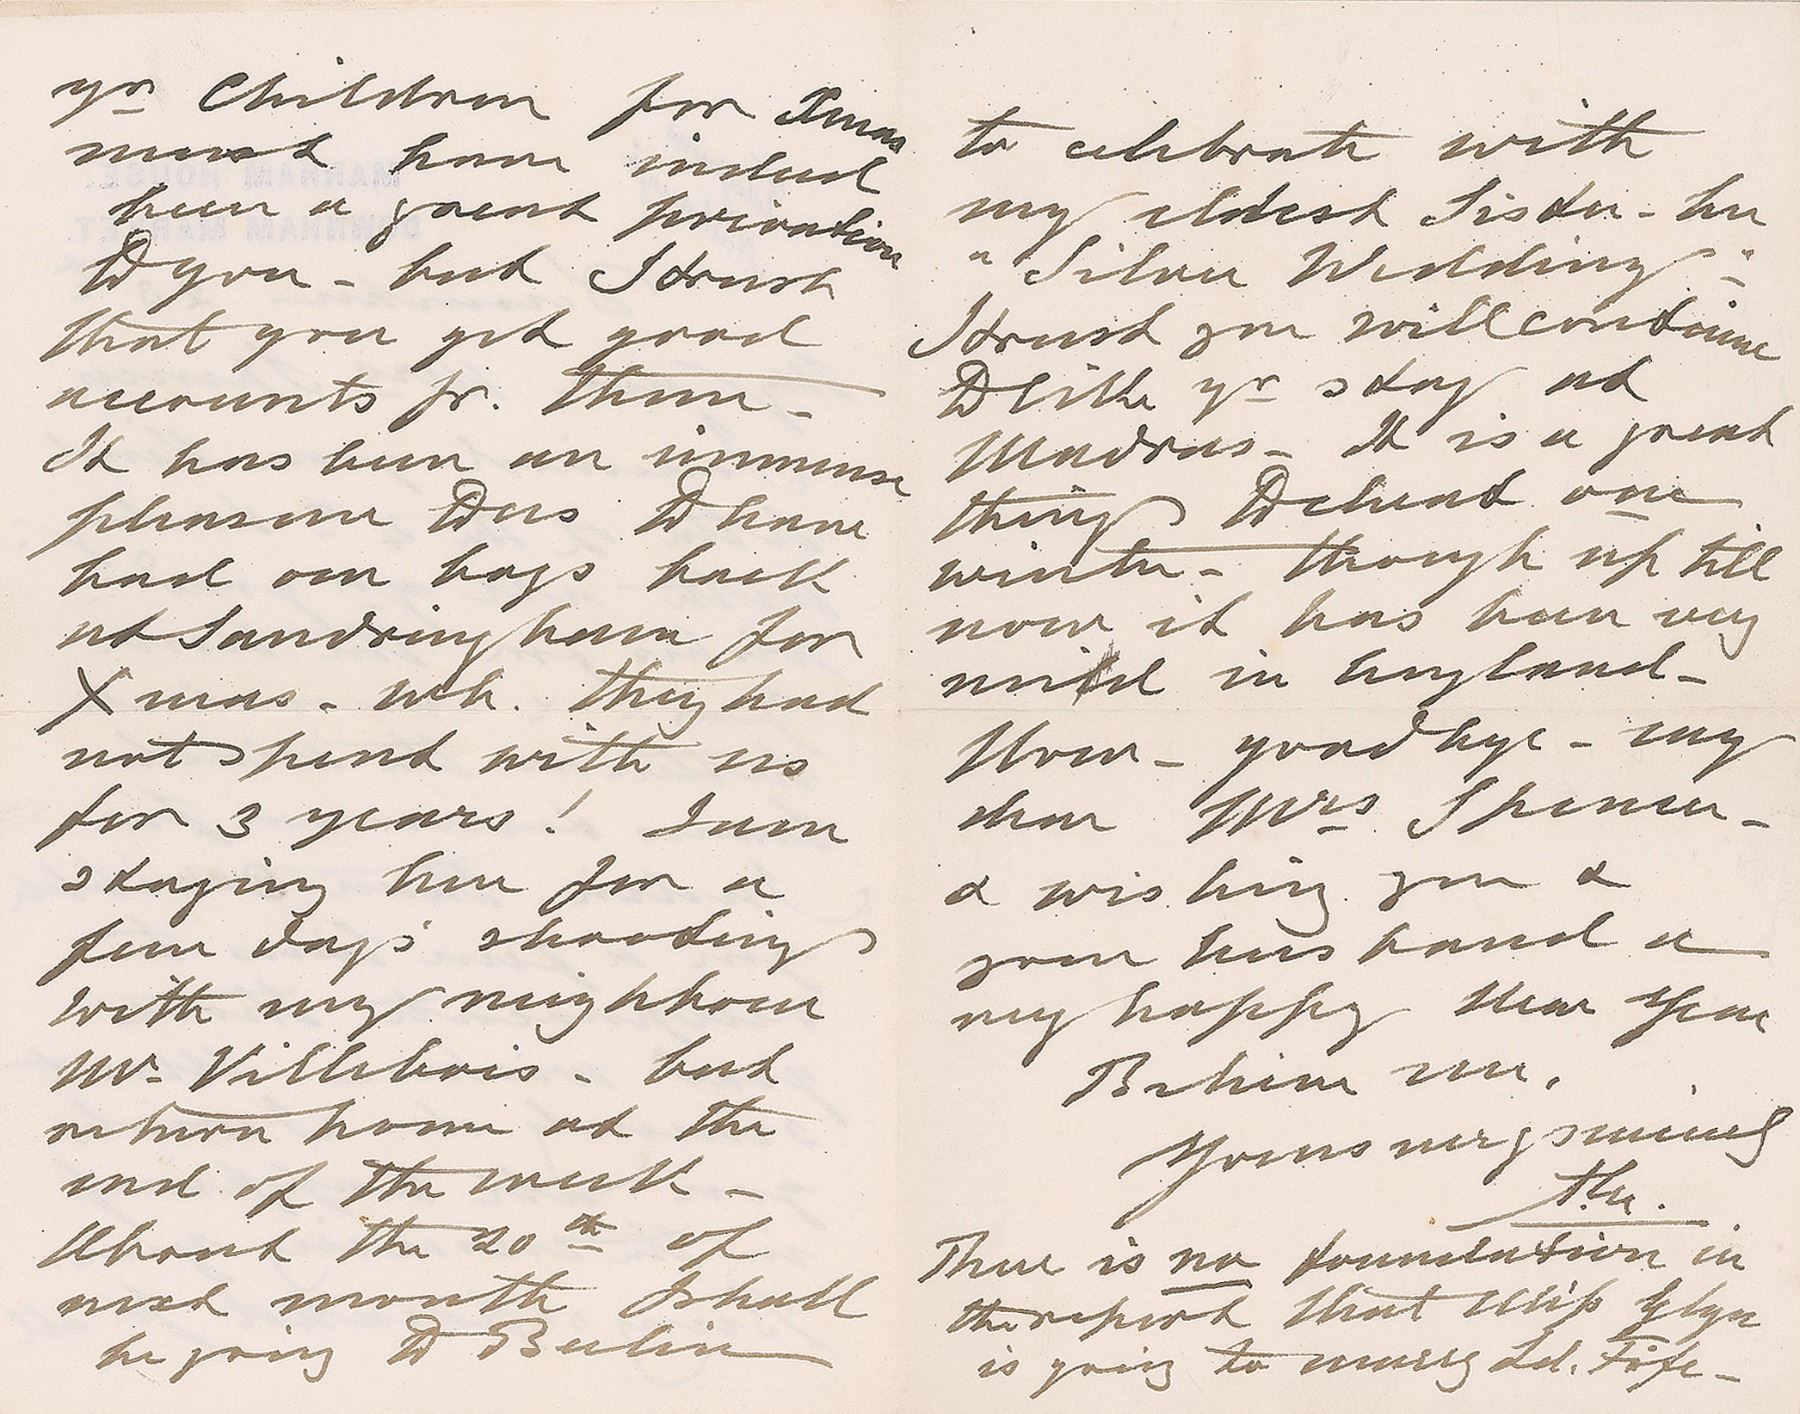 yr Children for Xmas
must have indeed
been a great privation
to you - but I trust
that you get good
accounts fr. them -
It has been an immense
pleasure to us to have
had our boys back
at Sandringham for
Xmas - wh. they had
not spent with us
for 3 years! I am
staying here for a
few days' shooting
with my neighbour
Mr. Villebois - but
return home at the
end of the week -
About the 20th of
next month I shall
be going to Berlin
to celebrate with
my eldest Sister - her
"Silver Wedding" -
I trust you will continue
to like yr stay at
Madras - It is a great
thing to cheat one
winter - though up till
now it has been very
mild in England -
Now - goodbye - my
dear Mrs Spencer -
& wishing you &
your husband a
very happy New Year
Believe me,
Yours very sincerely
There is no foundation in
the report that Miss Glyn
is going to marry Ld. Fife -
MARHAM HOUSE.
DOWNHAM MARKET.